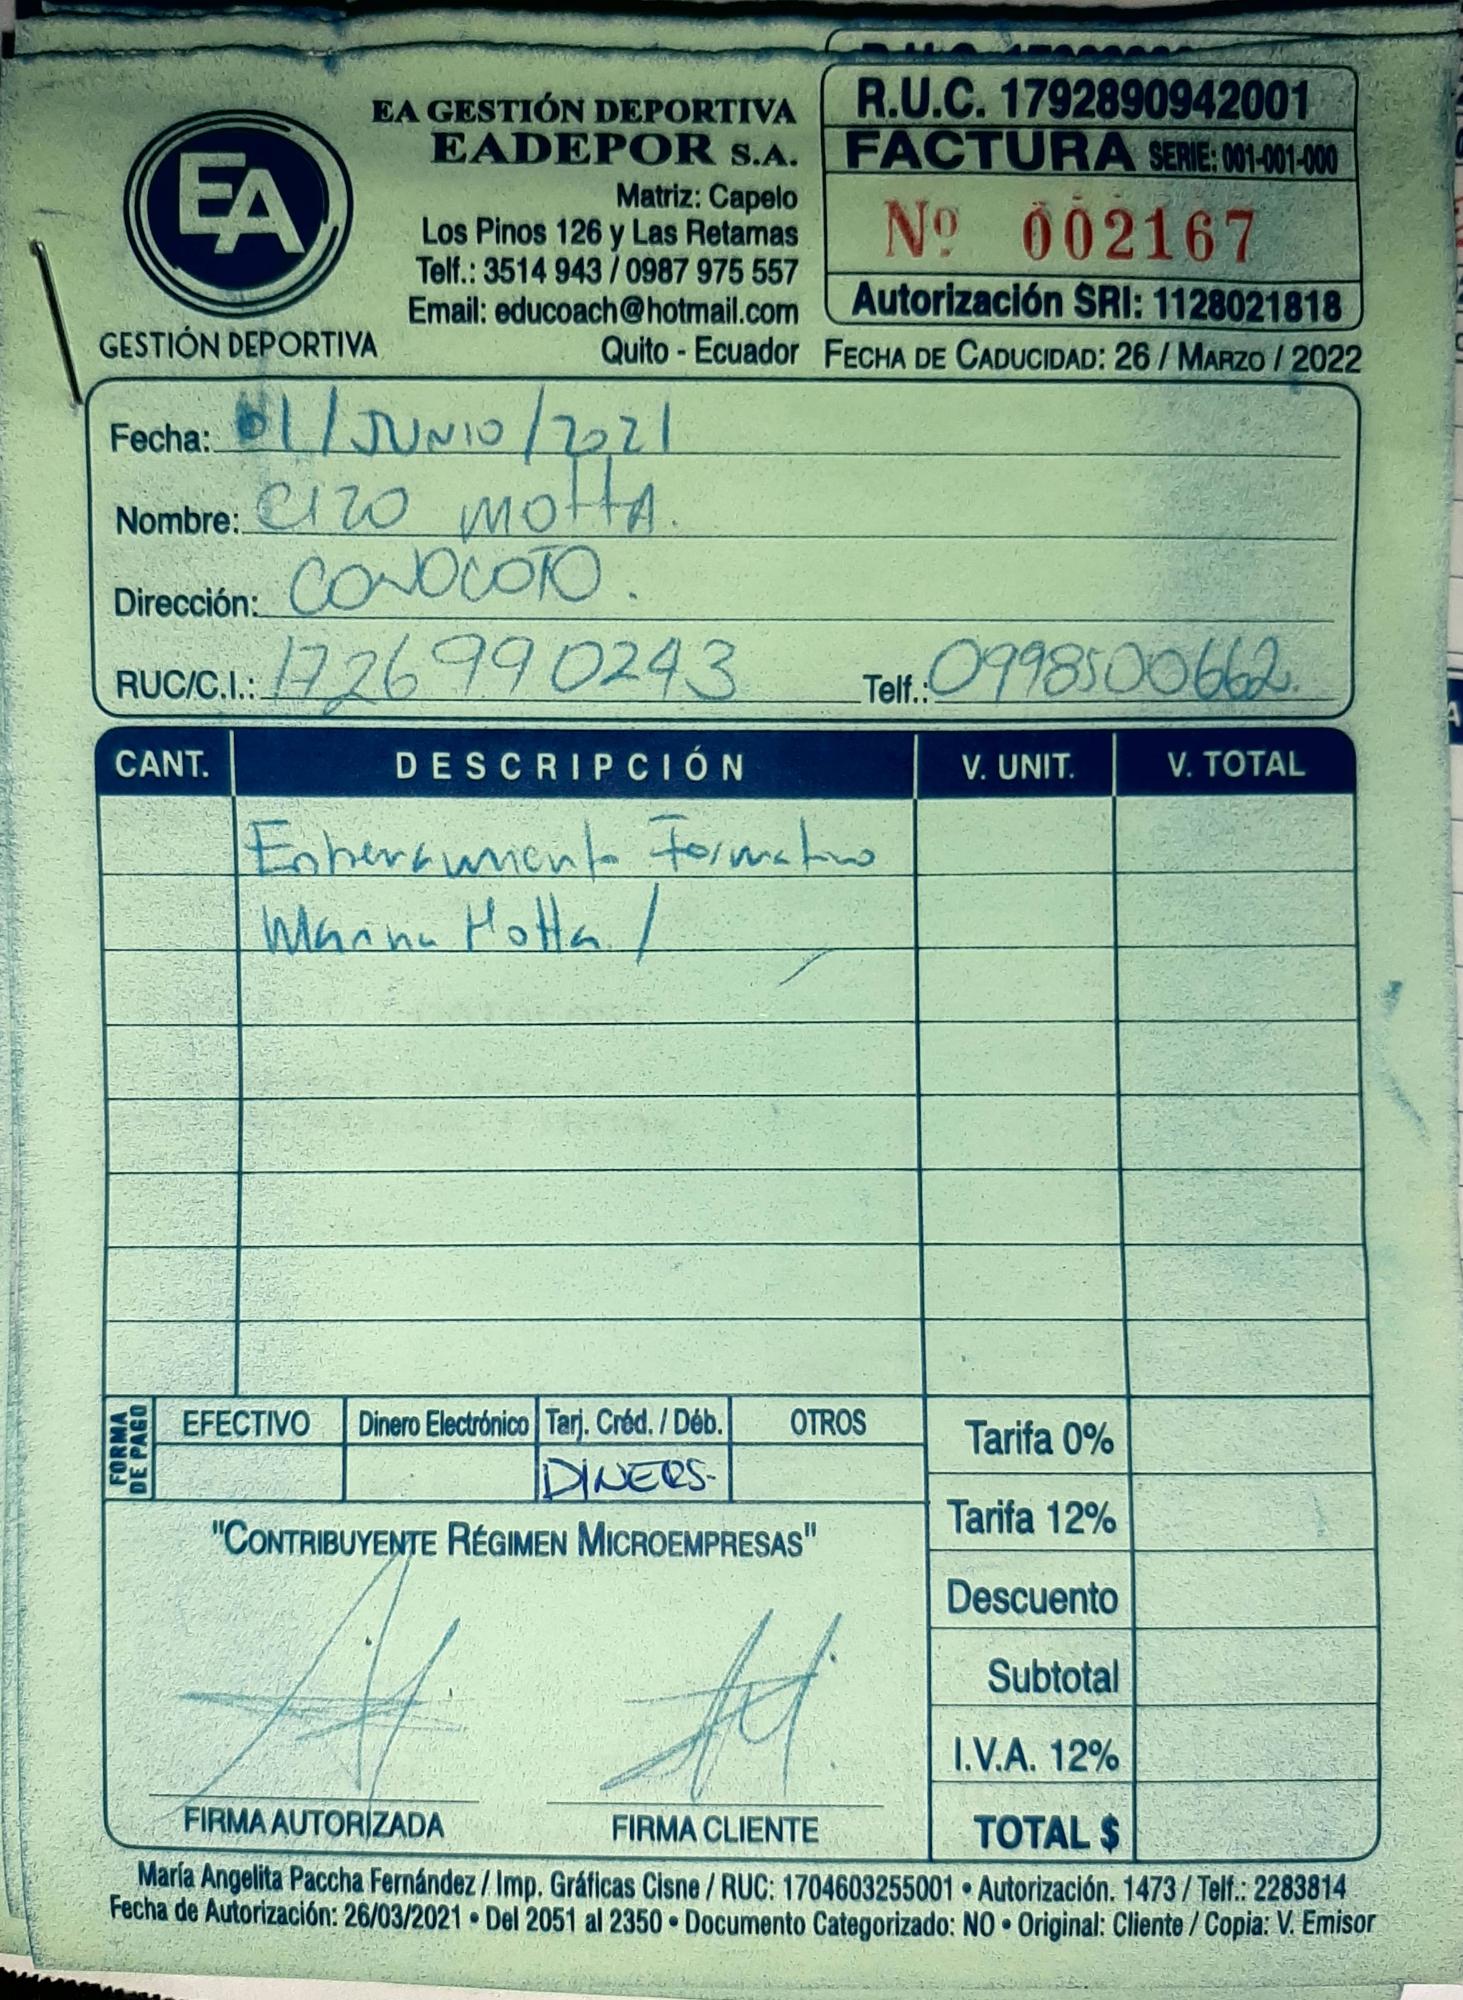 EA
GESTIÓN DEPORTIVA
EA GESTIÓN DEPORTIVA
EADEPOR S.A.
Matriz: Capelo
Los Pinos 126 y Las Retamas
Telf.: 3514 943 / 0987 975 557
Email: educoach@hotmail.com
Quito - Ecuador
R.U.C. 1792890942001
FACTURA SERIE: 001-001-000
Nº 002167
Autorización SRI: 1128021818
FECHA DE CADUCIDAD: 26 / MARZO / 2022
Fecha: 01/JUNIO/2021
Nombre: MOttA.
Dirección: CONOCOTO.
RUC/C.I.: 1726990243 Telf.: 0998500662.
CANT. DESCRIPCIÓN V. UNIT. V. TOTAL
Entrenamiento Formativo
Motta /
FORMA DE PAGO
EFECTIVO Dinero Electrónico Tarj. Créd. / Déb. OTROS
DINERS-
Tarifa 0%
Tarifa 12%
Descuento
Subtotal
I.V.A. 12%
TOTAL $
"CONTRIBUYENTE RÉGIMEN MICROEMPRESAS"
FIRMA AUTORIZADA FIRMA CLIENTE
María Angelita Paccha Fernández / Imp. Gráficas Cisne / RUC: 1704603255001 • Autorización. 1473 / Telf.: 2283814
Fecha de Autorización: 26/03/2021 • Del 2051 al 2350 • Documento Categorizado: NO • Original: Cliente / Copia: V. Emisor